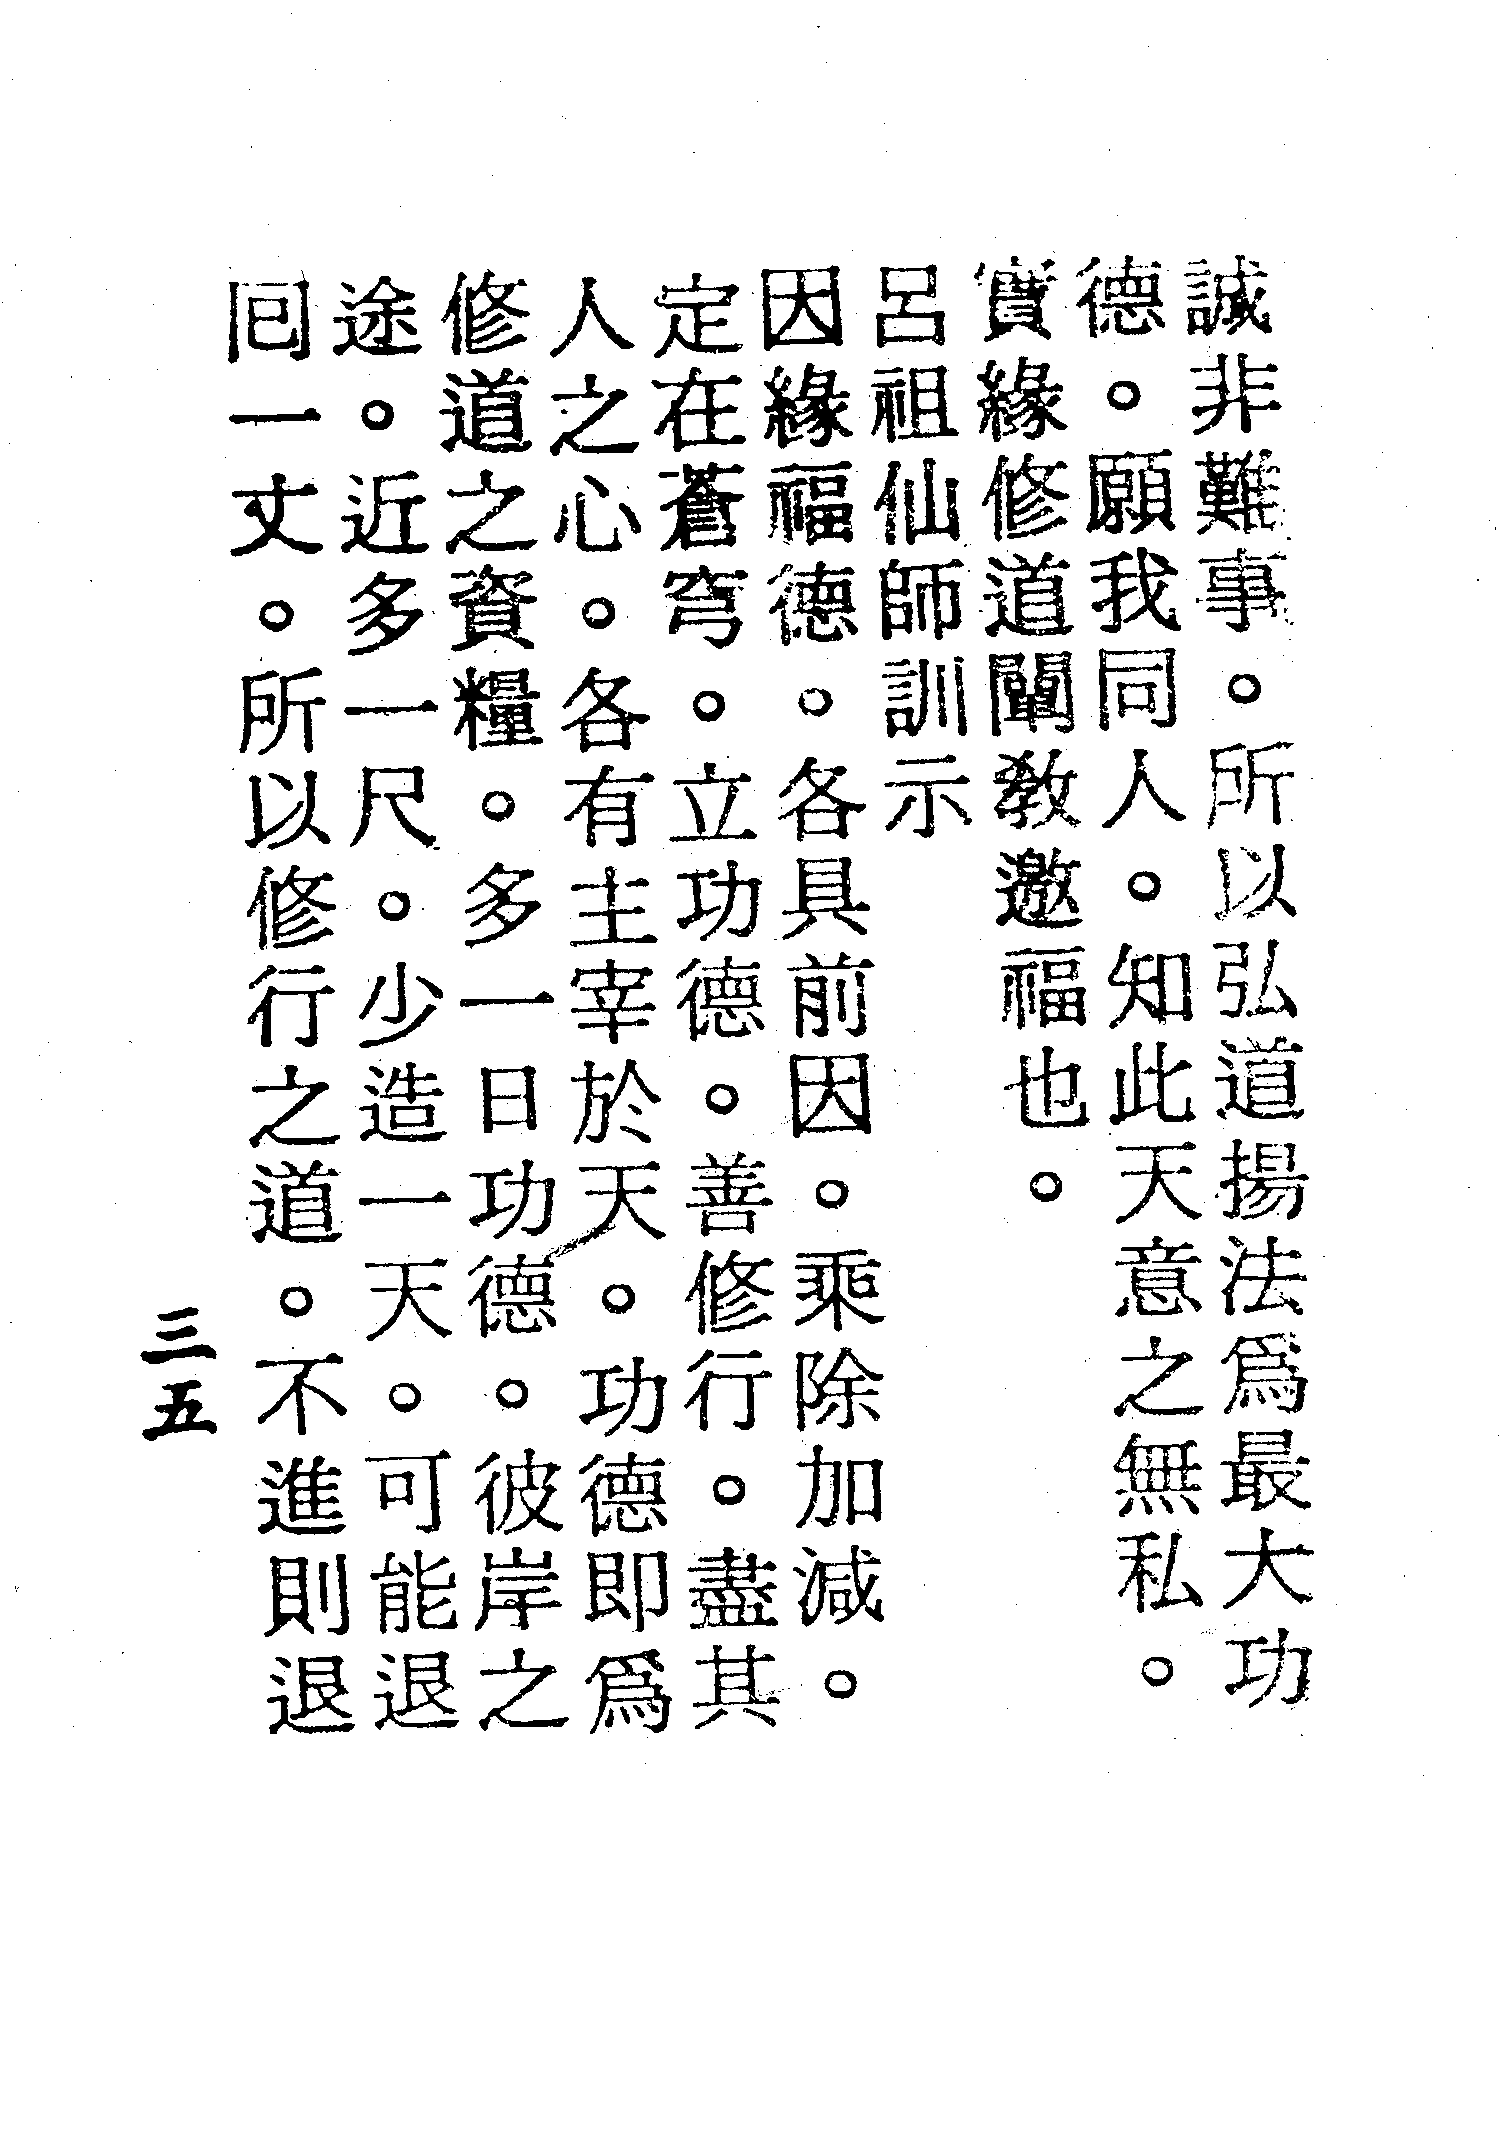 誠非難事。所以弘道揚法爲最大功
德。願我同人。知此天意之無私。
實緣修道闡教邀福也。
呂祖仙師訓示
因緣福德。各具前因。乘除加減。
定在蒼穹。立功德。善修行。盡其
人之心。各有主宰於天。功德即爲
修道之資糧。多一日功德。彼岸之
途。近多一尺。少造一天。可能退
囘一丈。所以修行之道。不進則退
三五